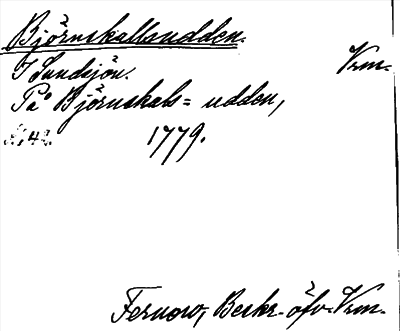 Björnskallsudden.
I Sundsjön. Vrm.
På Björnskals= udden,
1779.
Fernow, Beskr. öfv. Vrm.